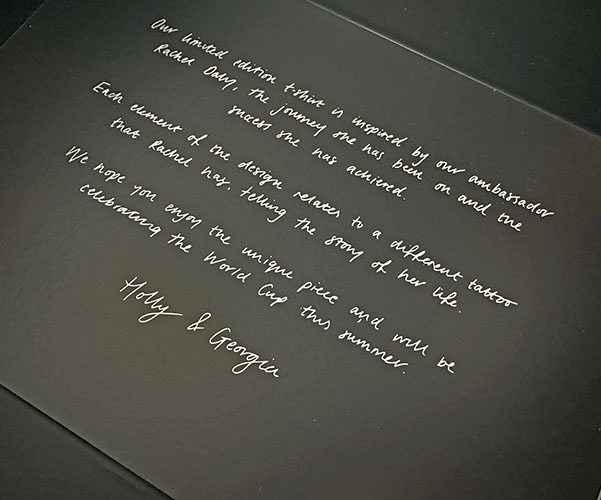 Our limited edition t-shirt is inspired by our ambassador
Rachel Daly, the journey she has been on and the
success she has achieved.
Each element of the design relates to a different tattoo
that Rachel has, telling the story of her life.
We hope you enjoy the unique piece and will be
celebrating the World Cup this summer.
Holly & Georgia